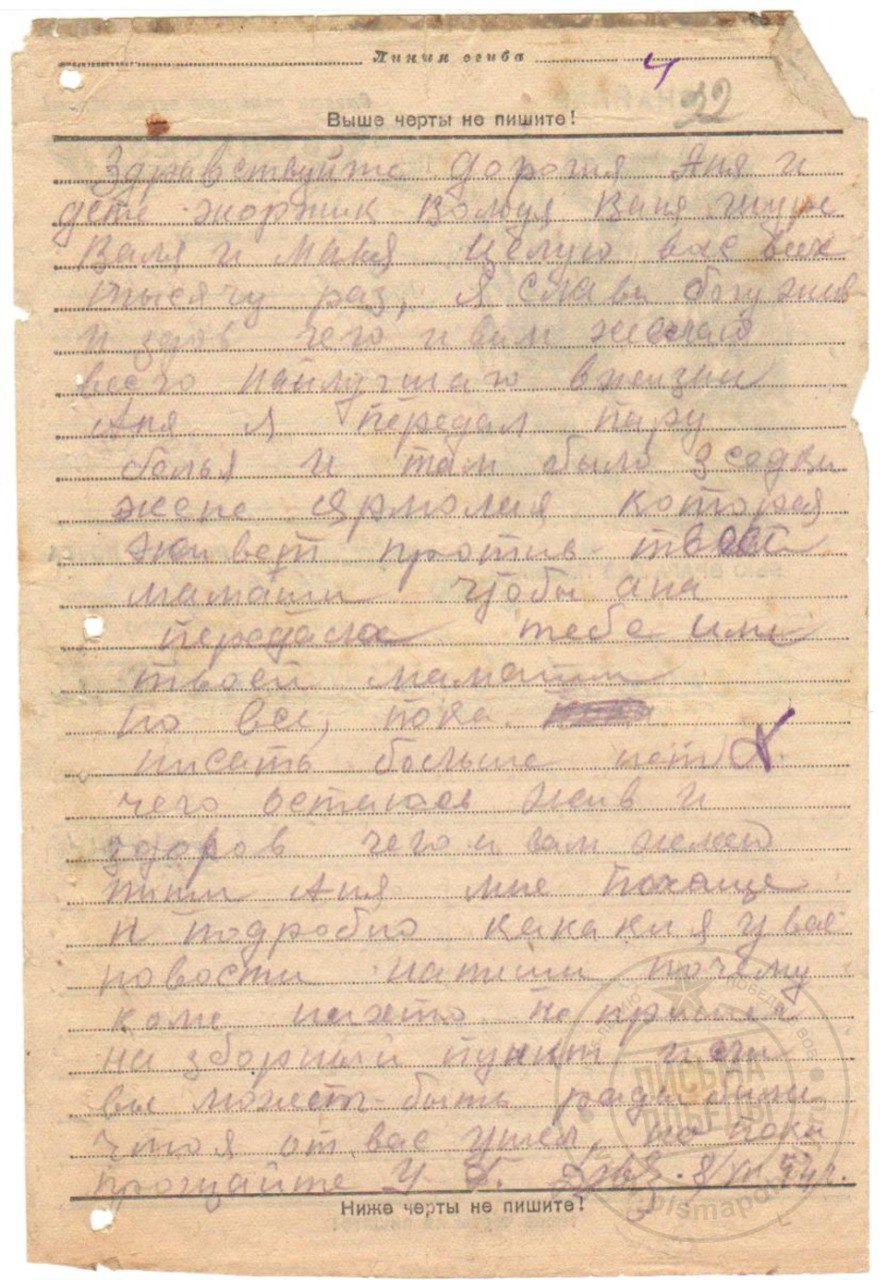 Линия сгиба
4
32
Выше черты не пишите!
Здравствуйте дорогия Аня и
дети жоржик Валя Ваня
Валя и Маня целую вас всех
тысячу раз, Я слава богу жив
и здов чего и вам желаю
всего наилучшаго в жизни
Аня я передал пару
белья и там было
жене Ярмолая которая
живет против твоей
мамаши чтобы ана
передала тебе или
твоей мамаши
но все, пока
писать больше нет
чего остаюсь жив и
здоров чего и вам желаю
пиши Аня мне почаще
и подробно какакия у вас
новости напиши почему
коме нихто не пришел
на зборный пункт
вы может-быть рады были
что я от вас ушел, но пока
прощайте
Ниже черты не пишите!
ПИСЬМА
ПОБЕДЫ